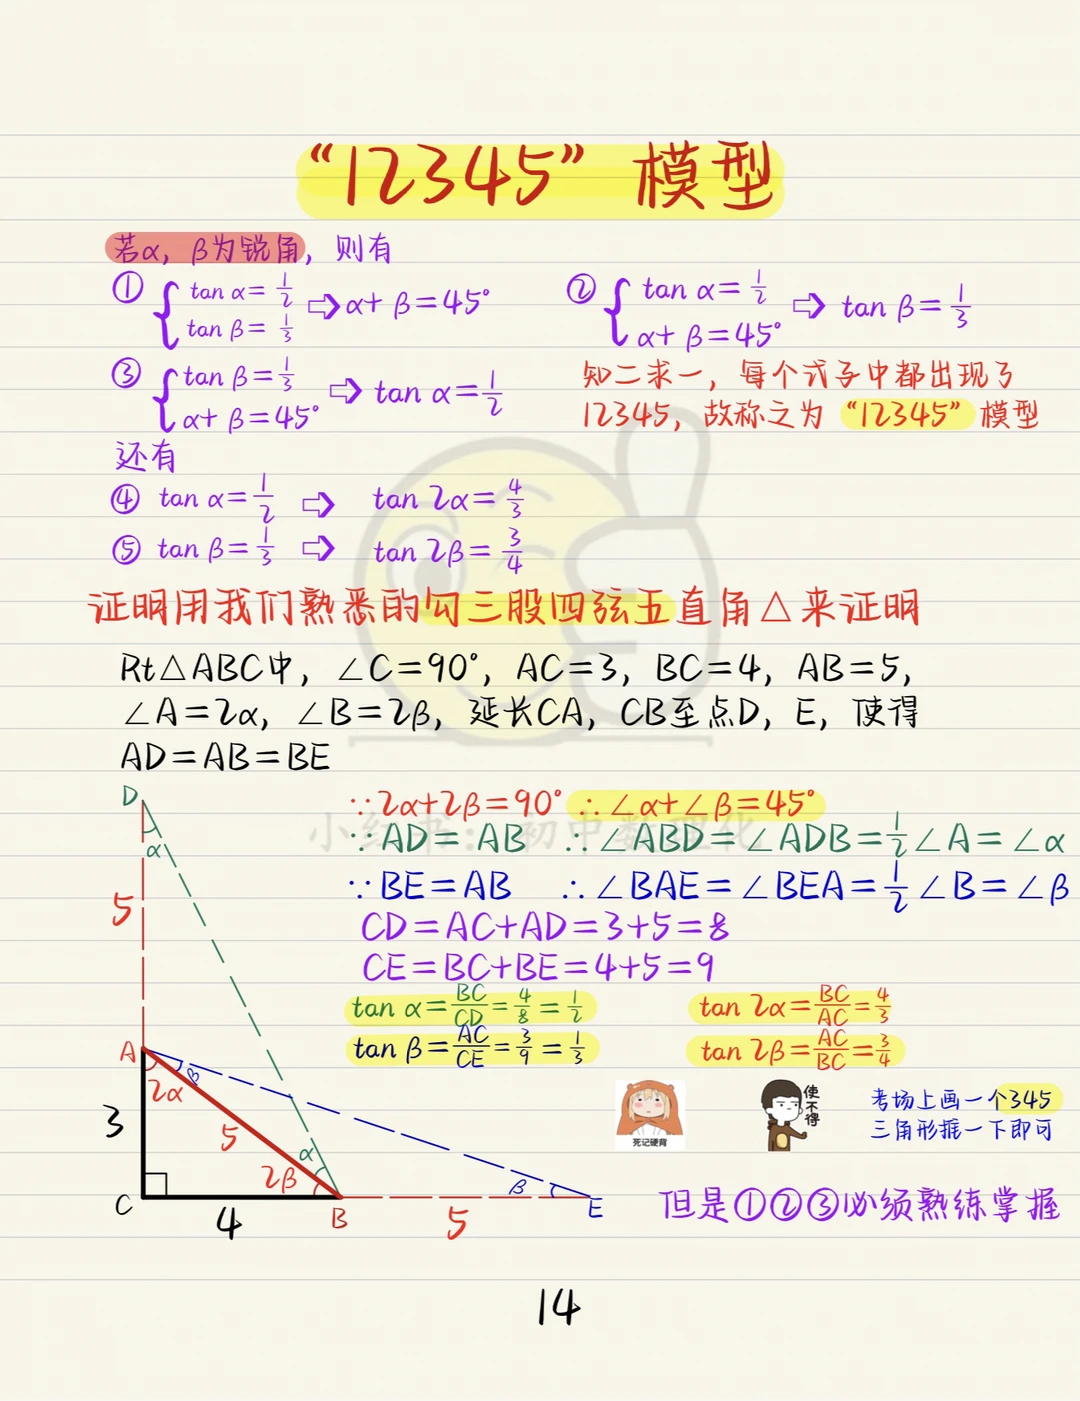 “12345”模型
若α，β为锐角，则有
① { tan α=1/2 tan β=1/3 ⇨ α+β=45°
② { tan α=1/2 α+β=45° ⇨ tan β=1/3
③ { tan β=1/3 α+β=45° ⇨ tan α=1/2
知二求一，每个式子中都出现了
12345，故称之为“12345”模型
还有
④ tan α=1/2 ⇨ tan 2α=4/3
⑤ tan β=1/3 ⇨ tan 2β=3/4
证明用我们熟悉的勾三股四弦五直角△来证明
Rt△ABC中，∠C=90°，AC=3，BC=4，AB=5，
∠A=2α，∠B=2β，延长CA，CB至点D，E，使得
AD=AB=BE
∵2α+2β=90° ∴∠α+∠β=45°
小红书：初中数理化
∵AD=AB ∴∠ABD=∠ADB=1/2∠A=∠α
∵BE=AB ∴∠BAE=∠BEA=1/2∠B=∠β
CD=AC+AD=3+5=8
CE=BC+BE=4+5=9
tan α=BC/CD=4/8=1/2
tan 2α=BC/AC=4/3
tan β=AC/CE=3/9=1/3
tan 2β=AC/BC=3/4
D
α
5
A
2α
β
3
5
α
2β
β
C
4
B
5
E
死记硬背
使不得
考场上画一个345
三角形推一下即可
但是①②③必须熟练掌握
14